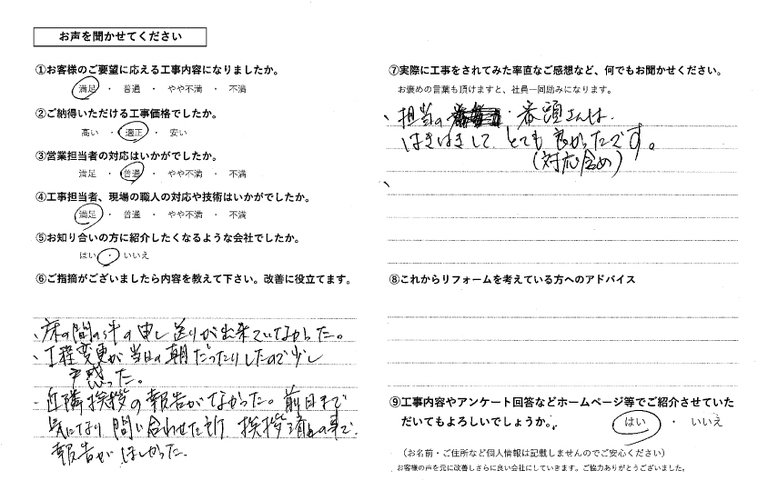 お声を聞かせてください
①お客様のご要望に応える工事内容になりましたか。
満足 ・ 普通 ・ やや不満 ・ 不満
②ご納得いただける工事価格でしたか。
高い ・ 適正 ・ 安い
③営業担当者の対応はいかがでしたか。
満足 ・ 普通 ・ やや不満 ・ 不満
④工事担当者、現場の職人の対応や技術はいかがでしたか。
満足 ・ 普通 ・ やや不満 ・ 不満
⑤お知り合いの方に紹介したくなるような会社でしたか。
はい ・ いいえ
⑥ご指摘がございましたら内容を教えて下さい。改善に役立てます。
、床の間の件の申し送りが出来ていなかった。
、工程変更が当日の朝だったりしたので少し
戸惑った。
・近隣挨拶の報告がなかった。前日まで
気になり問い合わせた所、挨拶済との事で
報告がほしかった。
⑦実際に工事をされてみた率直なご感想など、何でもお聞かせください。
お褒めの言葉も頂けますと、社員一同励みになります。
、担当の 番頭さんは、
はきはきして とても良かったです。
(対応含め)
⑧これからリフォームを考えている方へのアドバイス
⑨工事内容やアンケート回答などホームページ等でご紹介させていた
だいてもよろしいでしょうか。 はい ・ いいえ
(お名前・ご住所など個人情報は記載しませんのでご安心ください)
お客様の声を元に改善しさらに良い会社にしていきます。ご協力ありがとうございました。